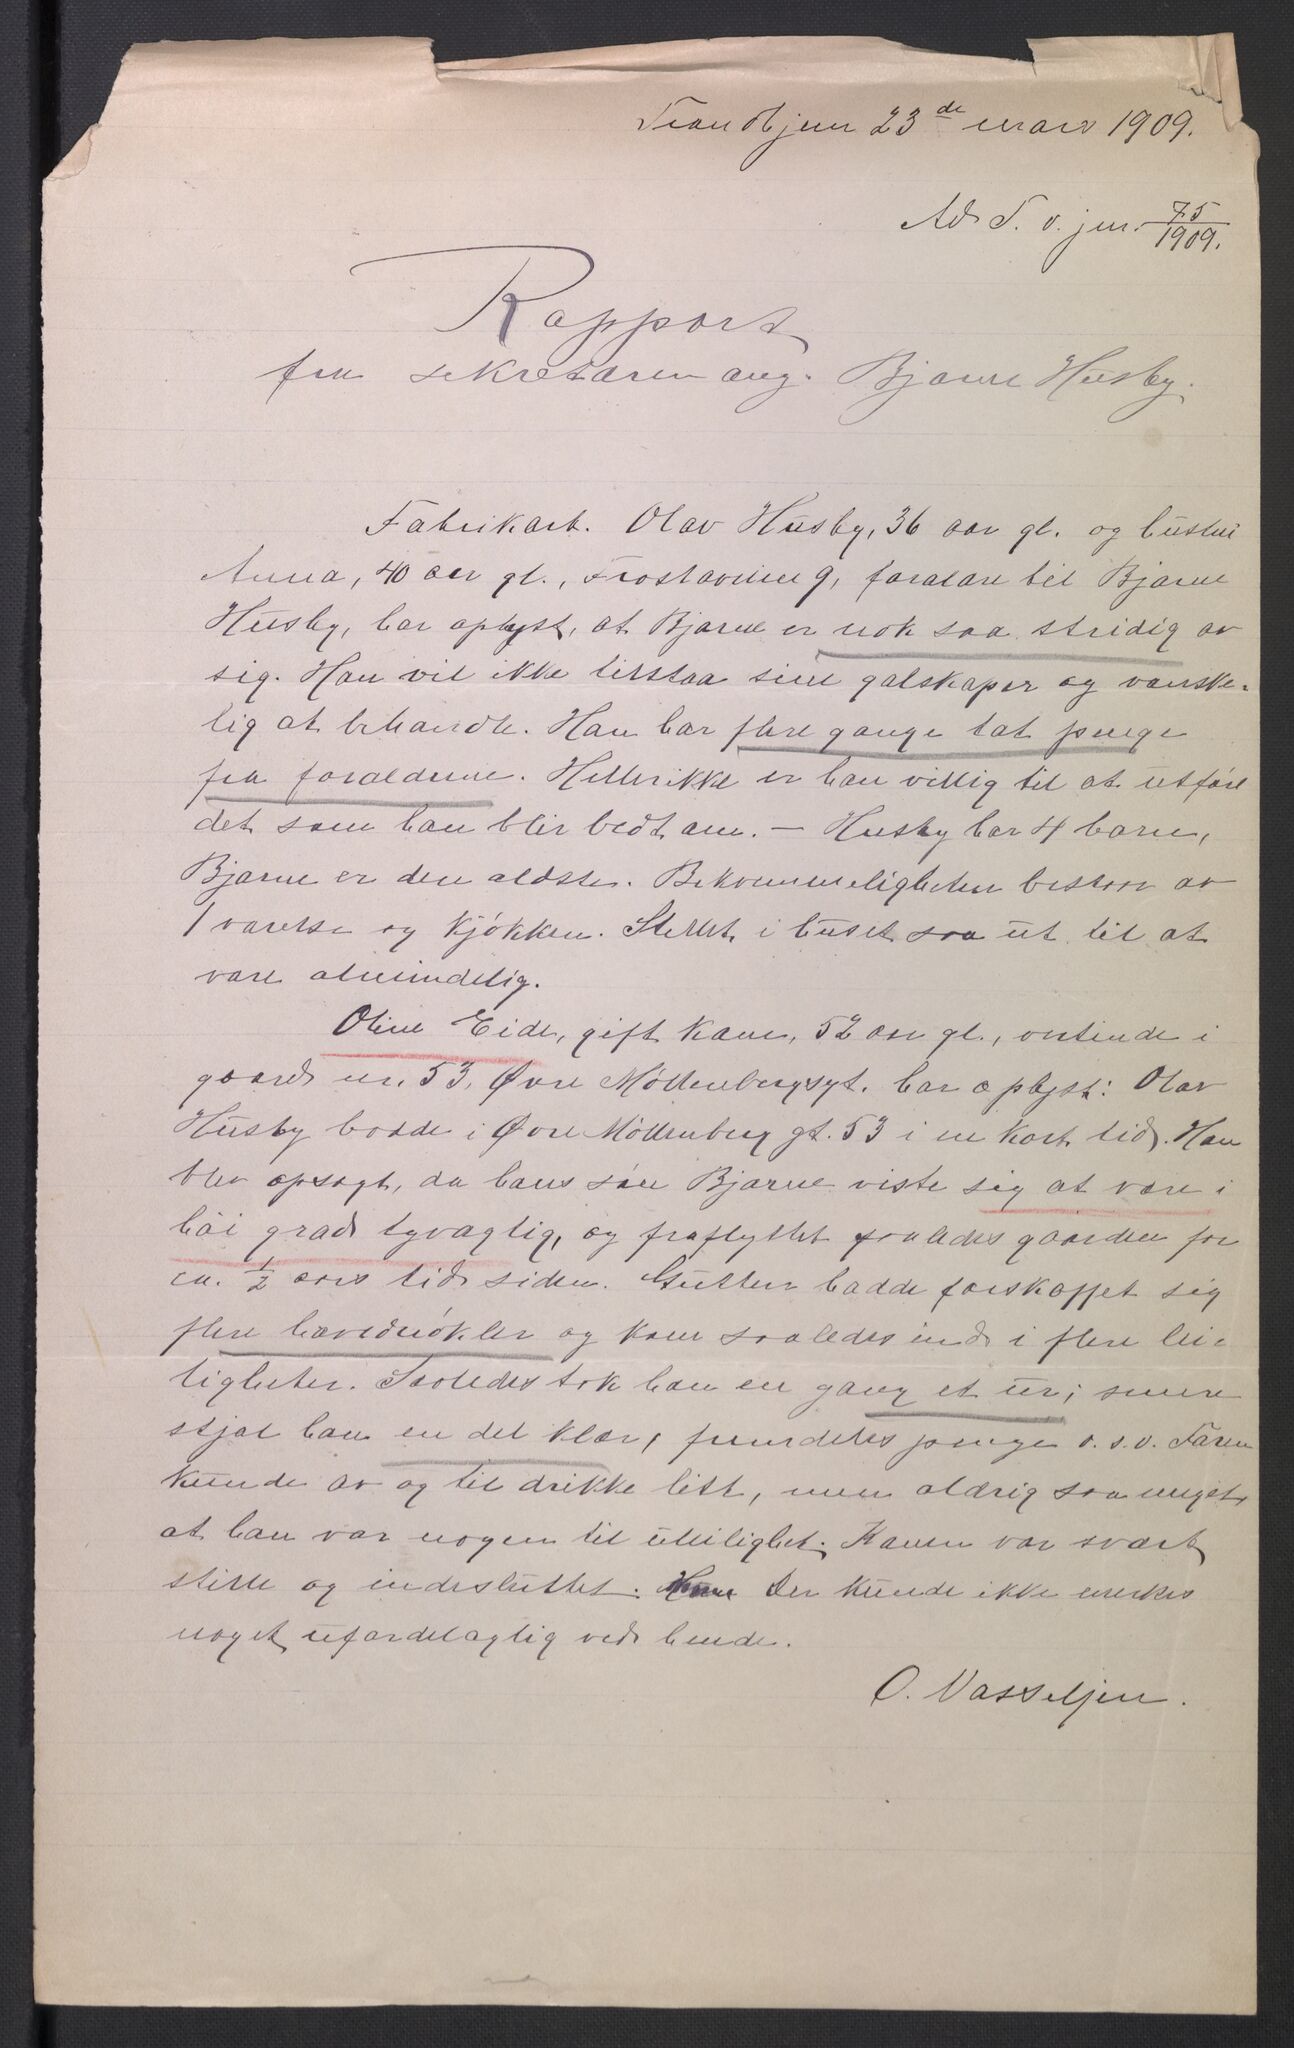 Trondhjem 23de mars 1909.
Ad T. v. jnr. 75/1909.
Rapport
fra sekretæren ang. Bjarne Husby.
Fabrikarb. Olav Husby, 36 aar gl. og hustru
Anna, 40 aar gl., Frostaveien 9, forældre til Bjarne
Husby, har oplyst, at Bjarne er nok saa stridig av
sig. Han vil ikke tilstaa sine galskaper og vanske-
lig at behandle. Han har flere gange tat penge
fra forældrene. Hellerikke er han villig til at utføre
det som han blir bedt om. – Husby har 4 barn,
Bjarne er den ældste. Bekvemmeligheten bestaar av
1 værelse og kjøkken. Stellet i huset saa ut til at
være almindelig.
Oline Eide, gift kone, 52 aar gl., vertinde i
gaard nr. 53, Øvre Møllenbergsgt. har oplyst: Olav
Husby bodde i Øvre Møllenberg gt. 53 i en kort tid. Han
blev opsagt, da hans søn Bjarne viste sig at være i
høi grad tyvagtig, og fraflyttet saaledes gaarden for
ca. 1/2 aars tid siden. Gutten hadde forskaffet sig
flere hovednøkler og kom saaledes ind i flere lei-
ligheter. Saaledes tok han en gang et ur; senere
stjal han en del klær, fremdeles penge o.s.v. Faren
kunde av og til drikke litt, men aldrig saa meget,
at han var nogen til uleilighet. Konen var svært
stille og indesluttet. Der kunde ikke merkes
noget ufordelagtig ved hende.
O. Vasseljen.